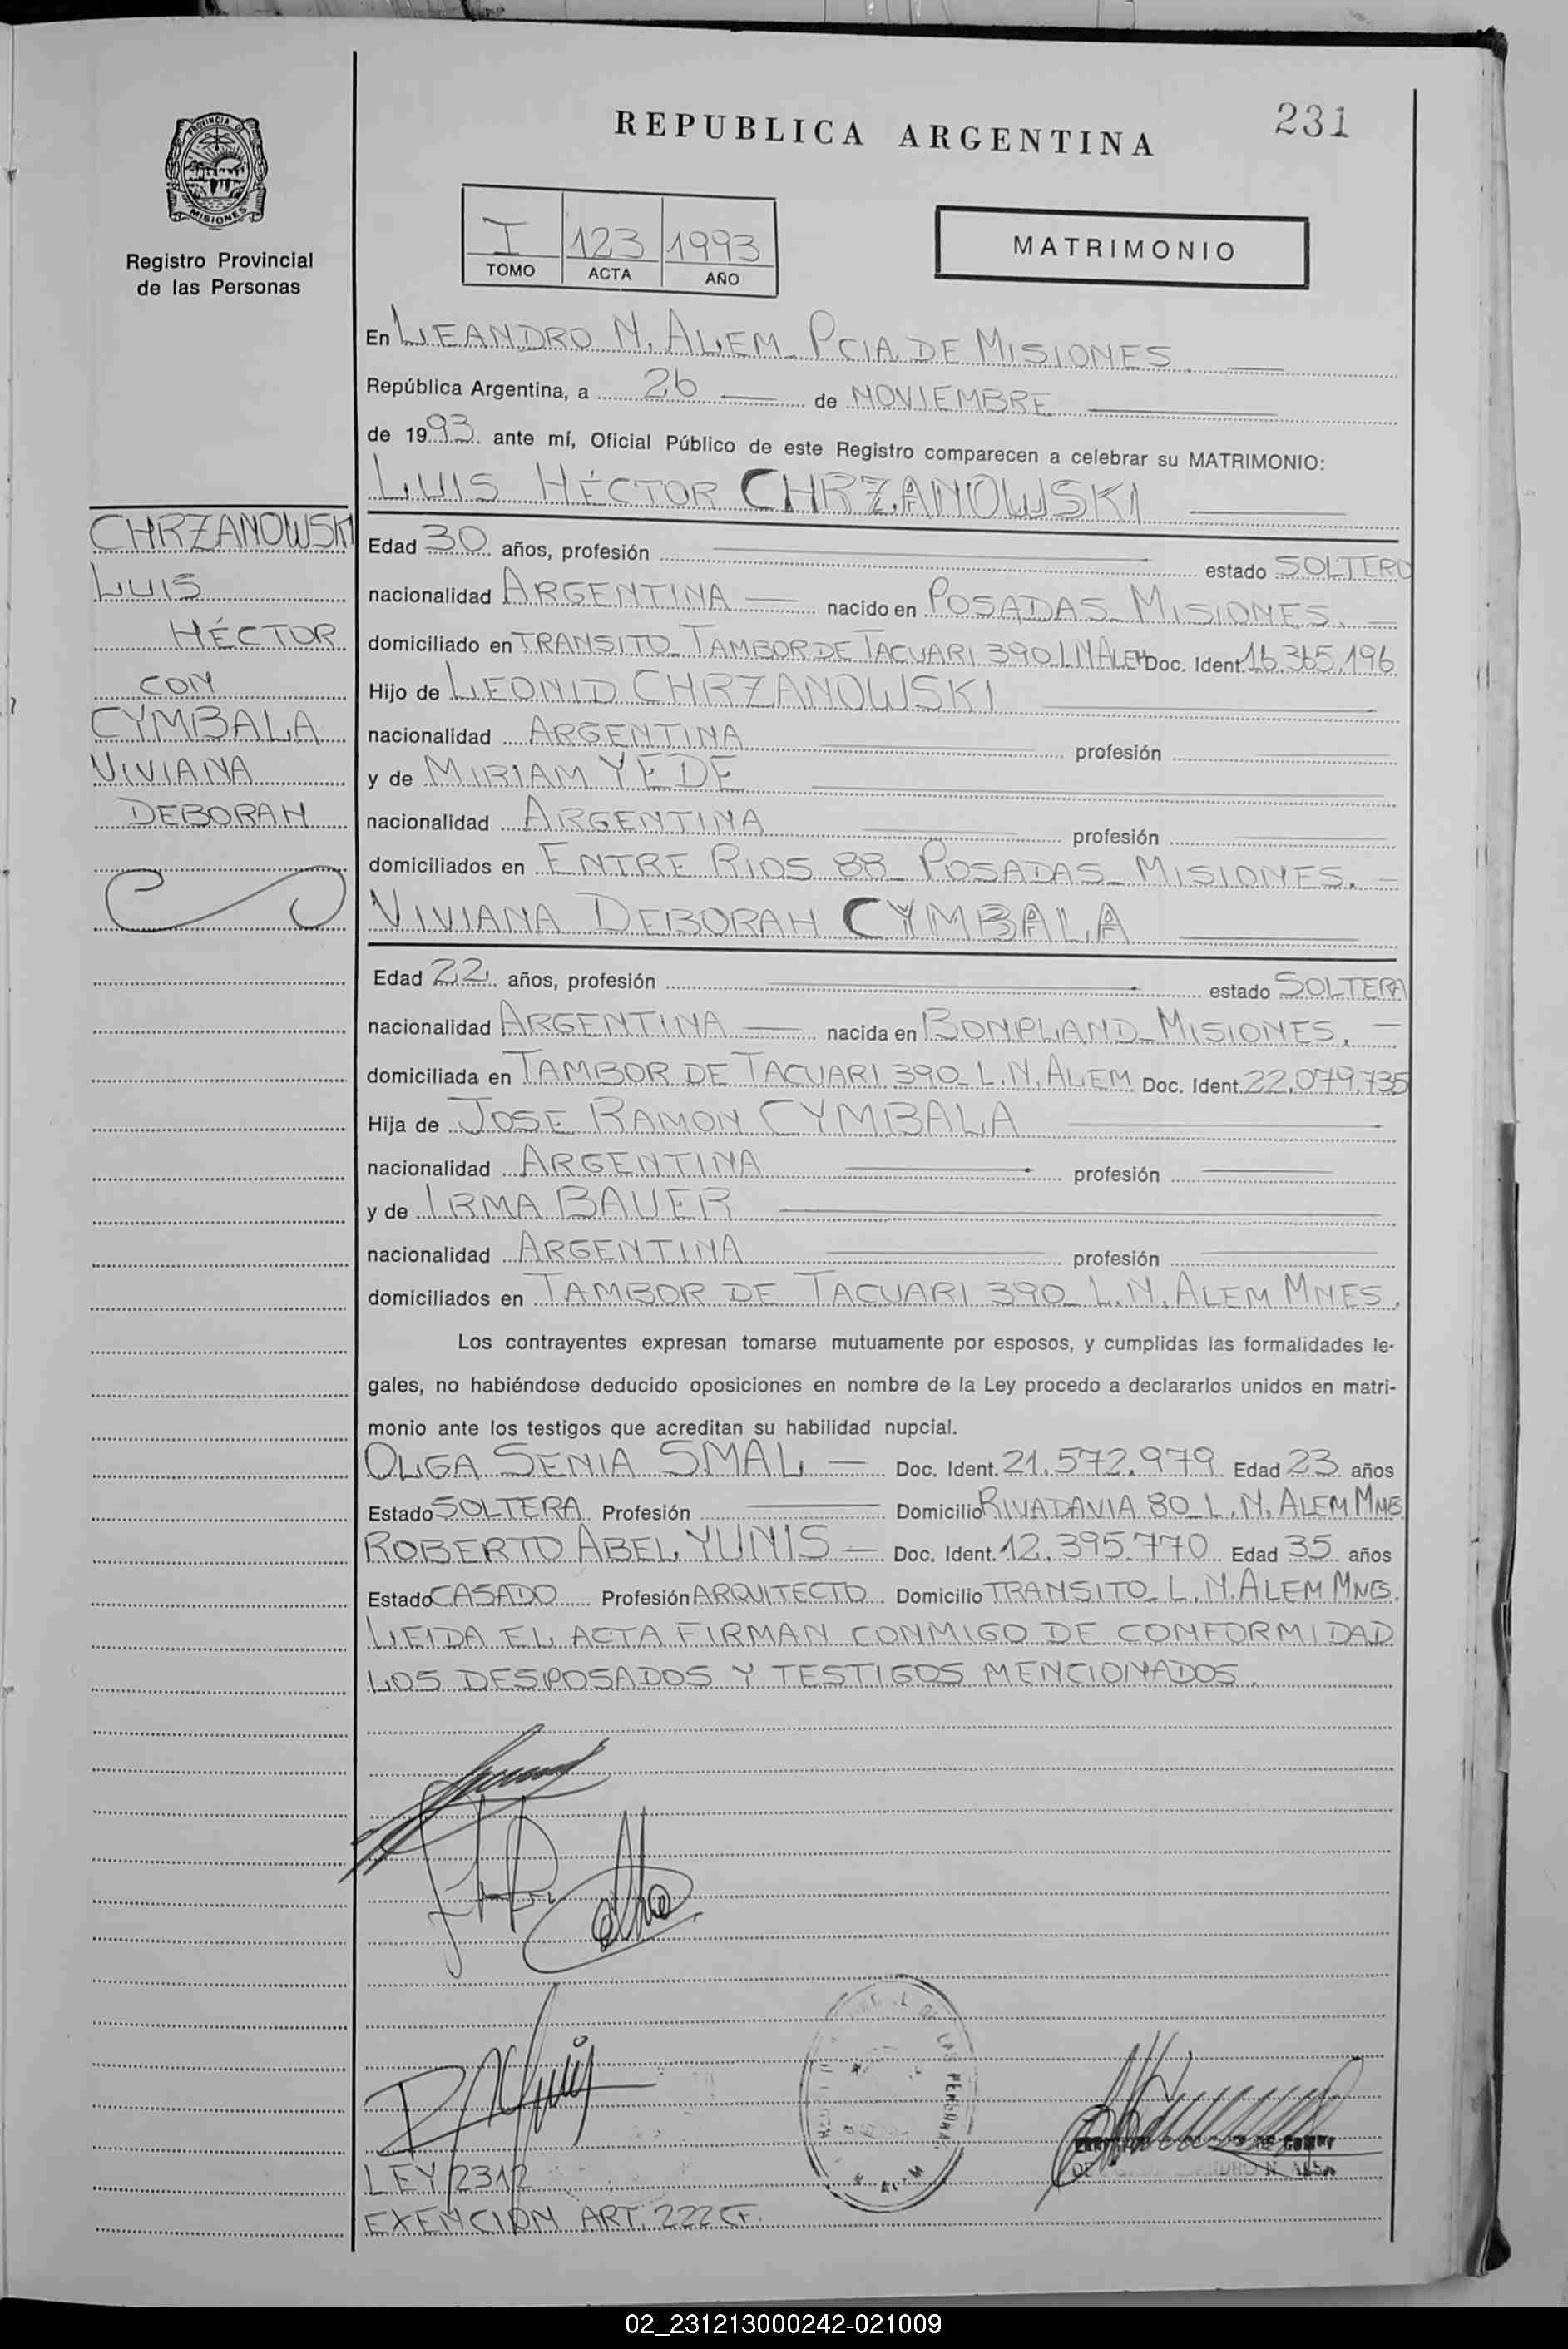 231
REPUBLICA ARGENTINA
PROVINCIA D
MISIONES
Registro Provincial
de las Personas
I 123 1993
TOMO ACTA AÑO
MATRIMONIO
En LEANDRO N. ALEM_ PCIA. DE MISIONES.
República Argentina, a 26 de NOVIEMBRE
de 1993. ante mí, Oficial Público de este Registro comparecen a celebrar su MATRIMONIO:
LUIS HÉCTOR CHRZANOWSKI
CHRZANOWSKI
LUIS
HÉCTOR
CON
CYMBALA
VIVIANA
DEBORAH
Edad 30 años, profesión estado SOLTERO
nacionalidad ARGENTINA nacido en POSADAS_ MISIONES.
domiciliado en TRANSITO_ TAMBOR DE TACUARI 390_L.N.ALEM Doc. Ident. 16.365.196
Hijo de LEONID CHRZANOWSKI
nacionalidad ARGENTINA profesión
y de MIRIAM YEDE
nacionalidad ARGENTINA profesión
domiciliados en ENTRE RIOS 88_ POSADAS_ MISIONES.
VIVIANA DEBORAH CYMBALA
Edad 22 años, profesión estado SOLTERA
nacionalidad ARGENTINA nacida en BONPLAND_ MISIONES.
domiciliada en TAMBOR DE TACUARI 390_ L.N. ALEM Doc. Ident. 22.079.735
Hija de JOSE RAMON CYMBALA
nacionalidad ARGENTINA profesión
y de IRMA BAUER
nacionalidad ARGENTINA profesión
domiciliados en TAMBOR DE TACUARI 390_ L.N. ALEM MNES.
Los contrayentes expresan tomarse mutuamente por esposos, y cumplidas las formalidades le-
gales, no habiéndose deducido oposiciones en nombre de la Ley procedo a declararlos unidos en matri-
monio ante los testigos que acreditan su habilidad nupcial.
OLGA SENIA SMAL Doc. Ident. 21.572.979 Edad 23 años
Estado SOLTERA Profesión Domicilio RIVADAVIA 80_ L.N. ALEM MNES
ROBERTO ABEL YUNIS Doc. Ident. 12.395.770 Edad 35 años
Estado CASADO Profesión ARQUITECTO Domicilio TRANSITO_ L.N. ALEM MNES.
LEIDA EL ACTA FIRMAN CONMIGO DE CONFORMIDAD
LOS DESPOSADOS Y TESTIGOS MENCIONADOS.
DE LAS PERSONAS
LEY 2312
EXENCION ART. 222 CF.
02_231213000242-021009